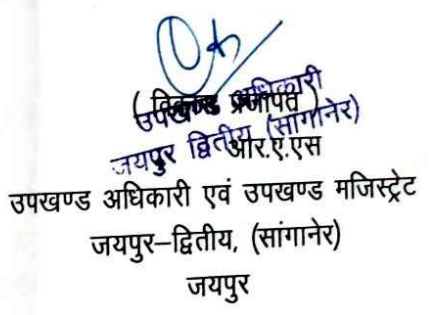 ( विकास प्रजापत )
उपखण्ड अधिकारी
जयपुर द्वितीय (सांगानेर)
आर.ए.एस
उपखण्ड अधिकारी एवं उपखण्ड मजिस्ट्रेट
जयपुर–द्वितीय, (सांगानेर)
जयपुर